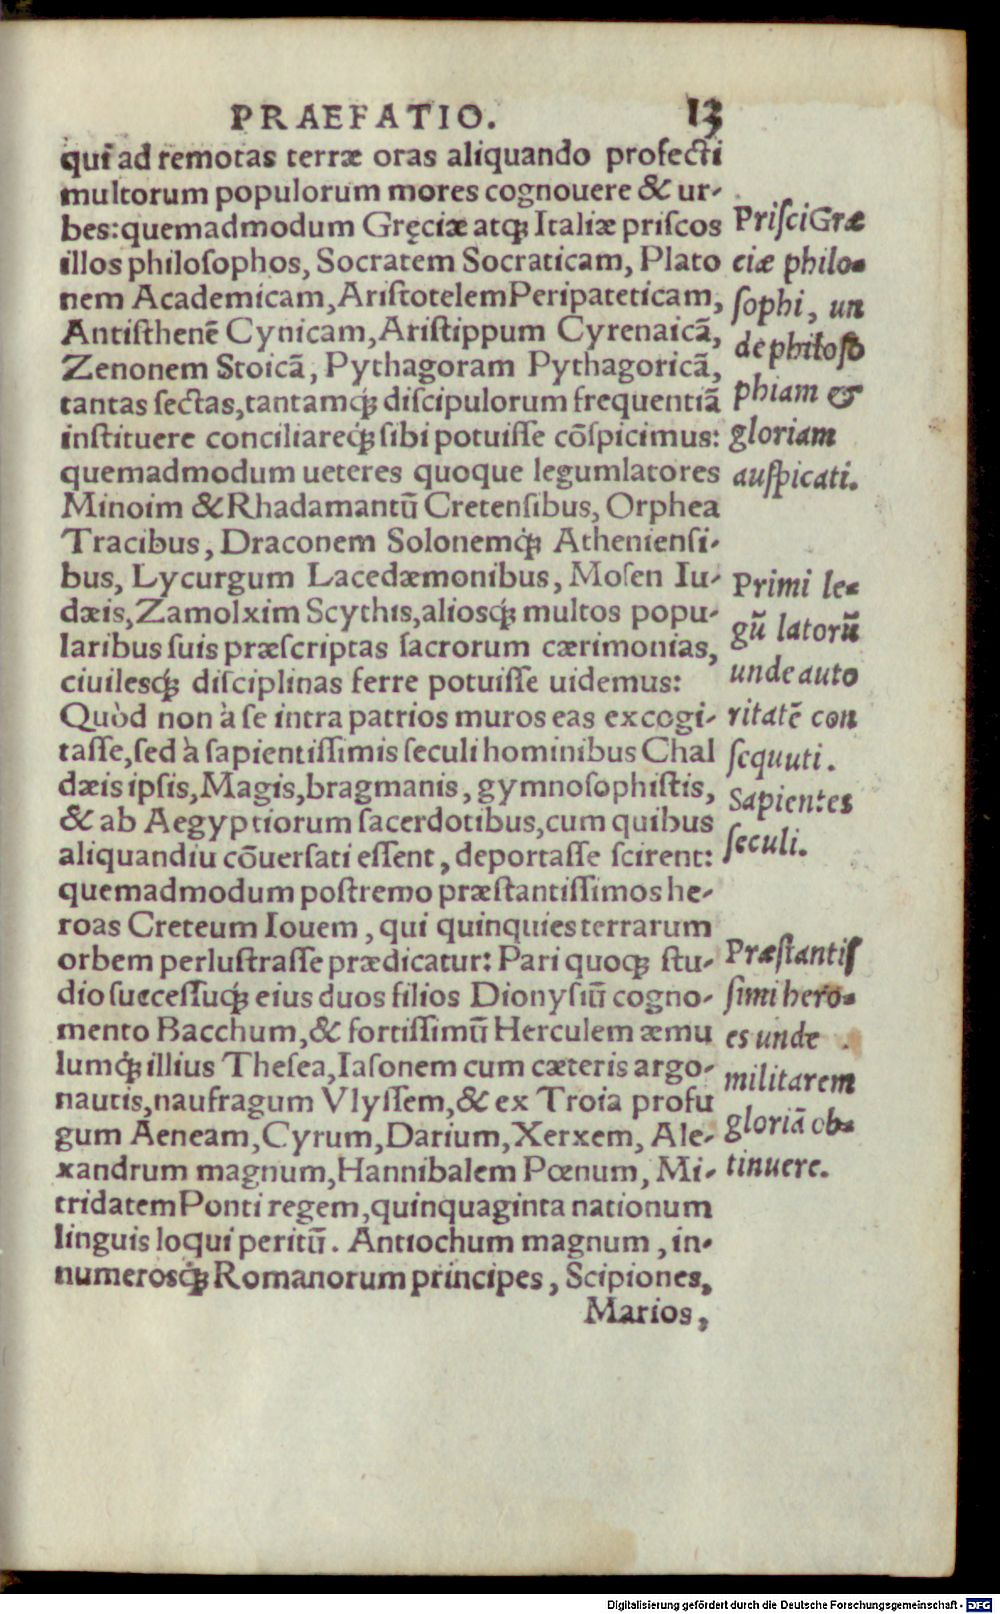 PRAEFATIO. 13
qui ad remotas terræ oras aliquando profecti
multorum populorum mores cognouere & ur-
bes: quemadmodum Gręciæ atq́; Italiæ priscos
illos philosophos, Socratem Socraticam, Plato
nem Academicam, Aristotelem Peripateticam,
Antisthenē Cynicam, Aristippum Cyrenaicā,
Zenonem Stoicā, Pythagoram Pythagoricā,
tantas sectas, tantamq́; discipulorum frequentiā
instituere conciliareq́; sibi potuisse cōspicimus:
quemadmodum ueteres quoque legumlatores
Minoim & Rhadamantū Cretensibus, Orphea
Tracibus, Draconem Solonemq́; Atheniensi-
bus, Lycurgum Lacedæmonibus, Mosen Iu-
dæis, Zamolxim Scythis, aliosq́; multos popu-
laribus suis præscriptas sacrorum cærimonias,
ciuilesq́; disciplinas ferre potuisse uidemus:
Quòd non à se intra patrios muros eas excogi-
tasse, sed à sapientissimis seculi hominibus Chal
dæis ipsis, Magis, bragmanis, gymnosophistis,
& ab Aegyptiorum sacerdotibus, cum quibus
aliquandiu cōuersati essent, deportasse scirent:
quemadmodum postremo præstantissimos he-
roas Creteum Iouem, qui quinquies terrarum
orbem perlustrasse prædicatur: Pari quoq; stu-
dio successuq́; eius duos filios Dionysiū cogno-
mento Bacchum, & fortissimū Herculem æmu
lumq́; illius Thesea, Iasonem cum cæteris argo-
nautis, naufragum Vlyssem, & ex Troia profu
gum Aeneam, Cyrum, Darium, Xerxem, Ale-
xandrum magnum, Hannibalem Pœnum, Mi-
tridatem Ponti regem, quinquaginta nationum
linguis loqui peritū. Antiochum magnum, in-
numerosq́; Romanorum principes, Scipiones,
Marios,
Prisci Græ
ciæ philo-
sophi, un
de philoso
phiam &
gloriam
auspicati.
Primi le-
gū latorū
unde auto
ritatē con
sequuti.
Sapientes
seculi.
Præstantis
simi hero-
es unde
militarem
gloriā ob-
tinuere.
Digitalisierung gefördert durch die Deutsche Forschungsgemeinschaft - DFG